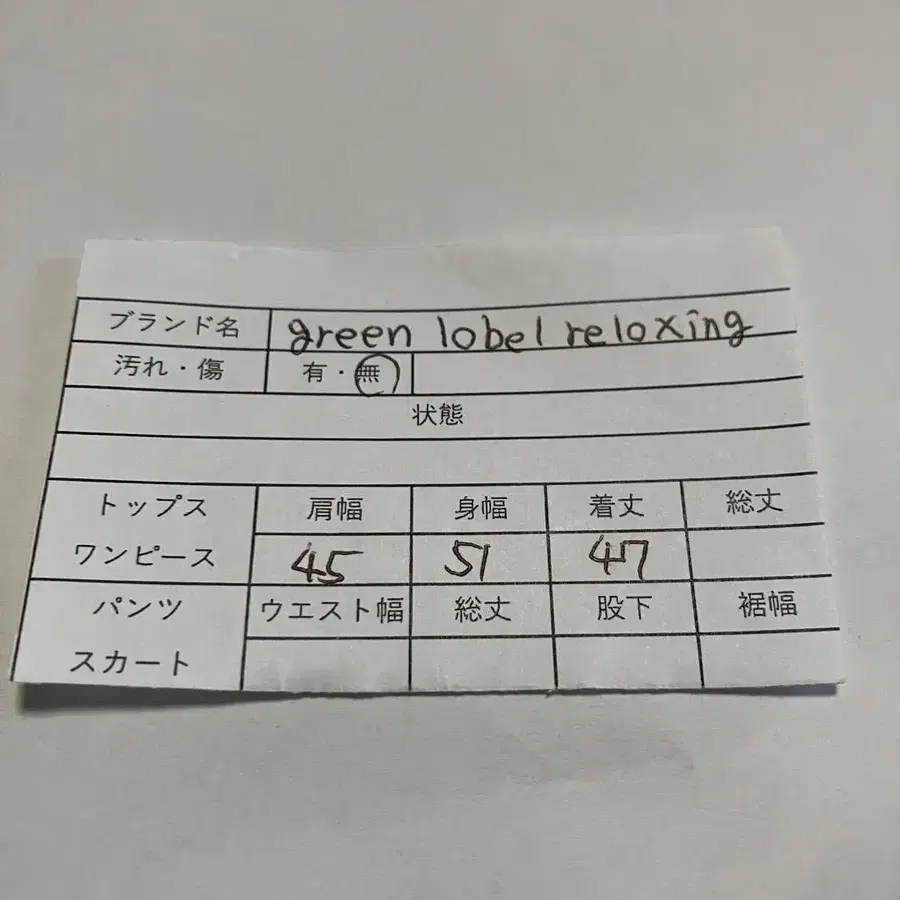 ブランド名 green lobel reloxing
汚れ・傷 有・無
状態
トップス 肩幅 身幅 着丈 総丈
ワンピース 45 51 47
パンツ ウエスト幅 総丈 股下 裾幅
スカート